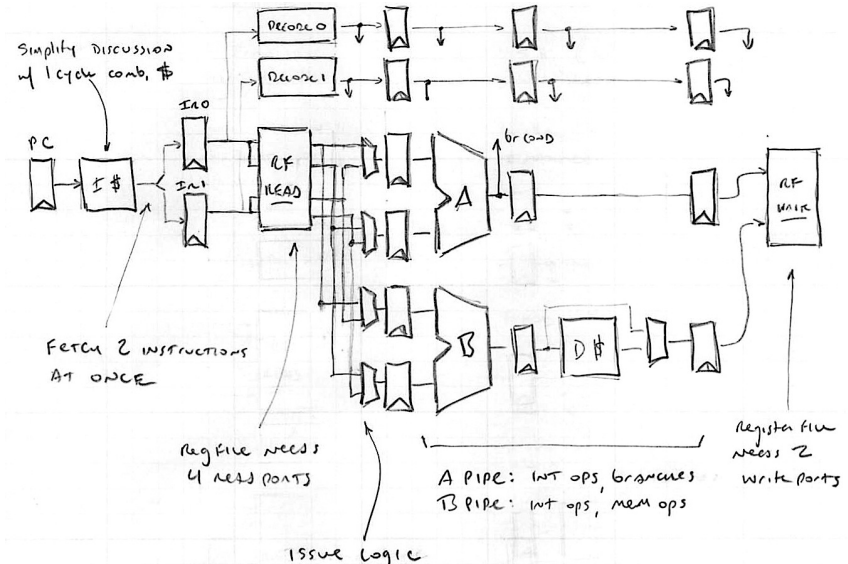 Simplify Discussion
w/ 1 cycle comb. $
Decode 0
Decode 1
PC
I $
IR0
IR1
RF
READ
A
br cond
RF
Write
B
D $
Fetch 2 instructions
At once
Regfile needs
4 read ports
Issue Logic
A pipe: Int ops, branches
B pipe: Int ops, mem ops
Register file
needs 2
write ports